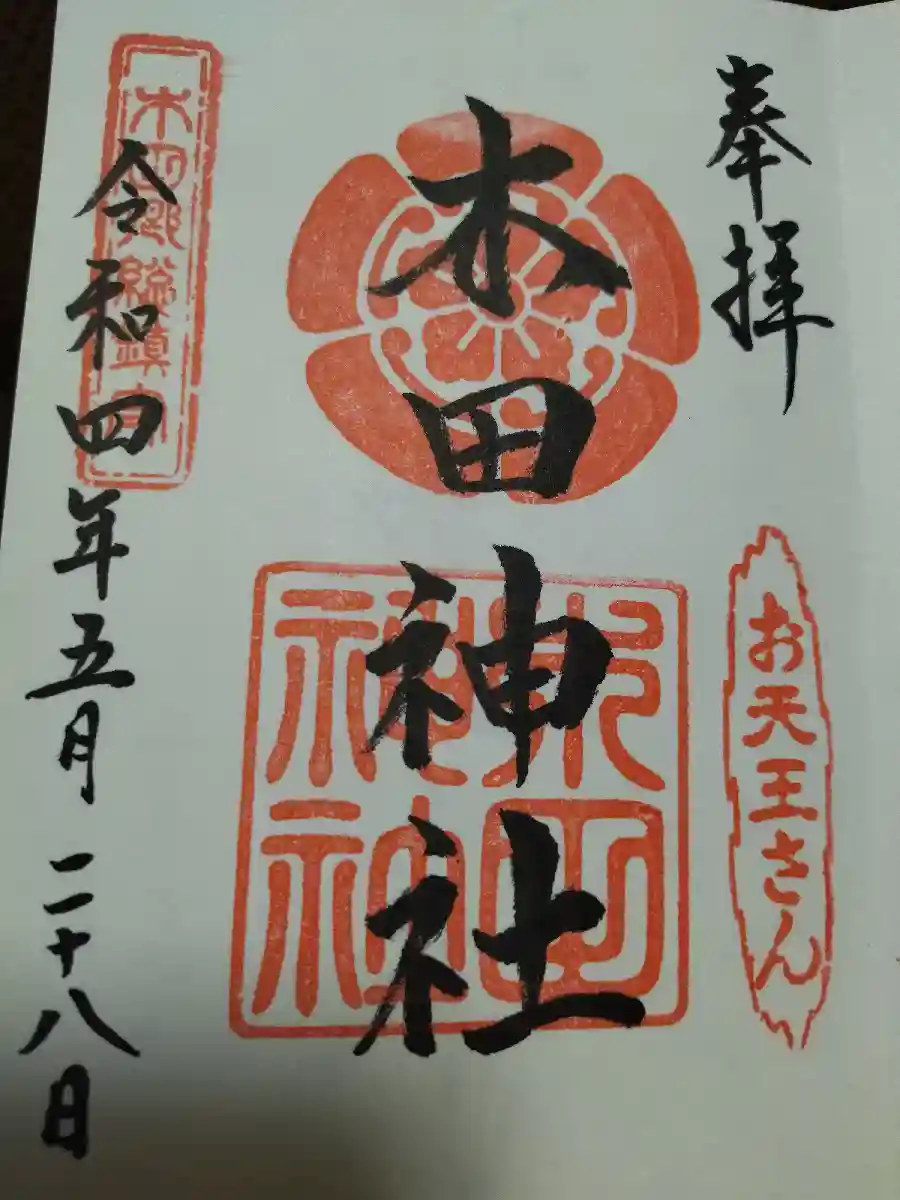 奉拝
お天王さん
木田神社
木田神社
木田郷総鎮守
令和四年五月二十八日